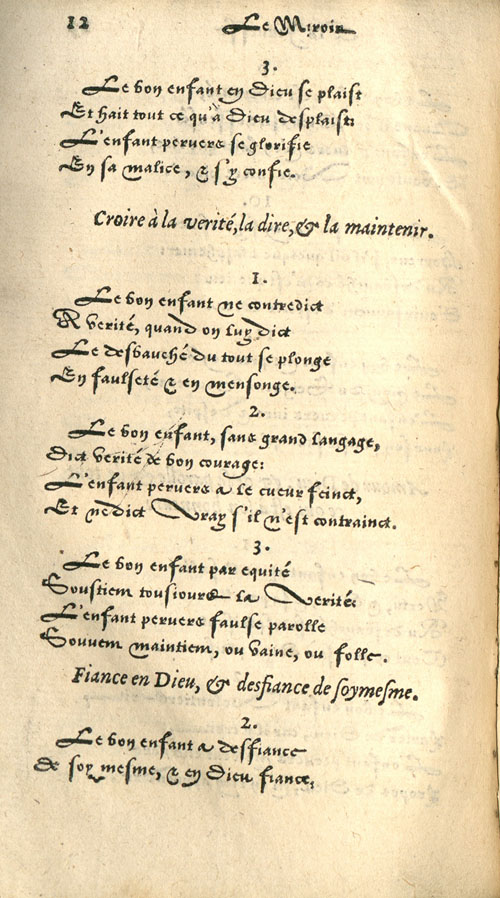 12 Le Miroir
3.
Le bon enfant en Dieu se plaist
Et hait tout ce qu'à Dieu desplaist:
L'enfant pervers se glorifie
En sa malice, & s'y confie.
Croire à la verité, la dire, & la maintenir.
1.
Le bon enfant ne contredict
A verité, quand on luy dict
Le desbauché du tout se plonge
En faulseté & en mensonge.
2.
Le bon enfant, sans grand langage,
Dict verité de bon courage:
L'enfant pervers a le cueur feinct,
Et ne dict vray s'il n'est contrainct.
3.
Le bon enfant par equité
Soustient tousiours la verité:
L'enfant pervers faulse parolle
Souvent maintient, ou vaine, ou folle.
Fiance en Dieu, & desfiance de soymesme.
2.
Le bon enfant a desfiance
De soy mesme, & en Dieu fiance,